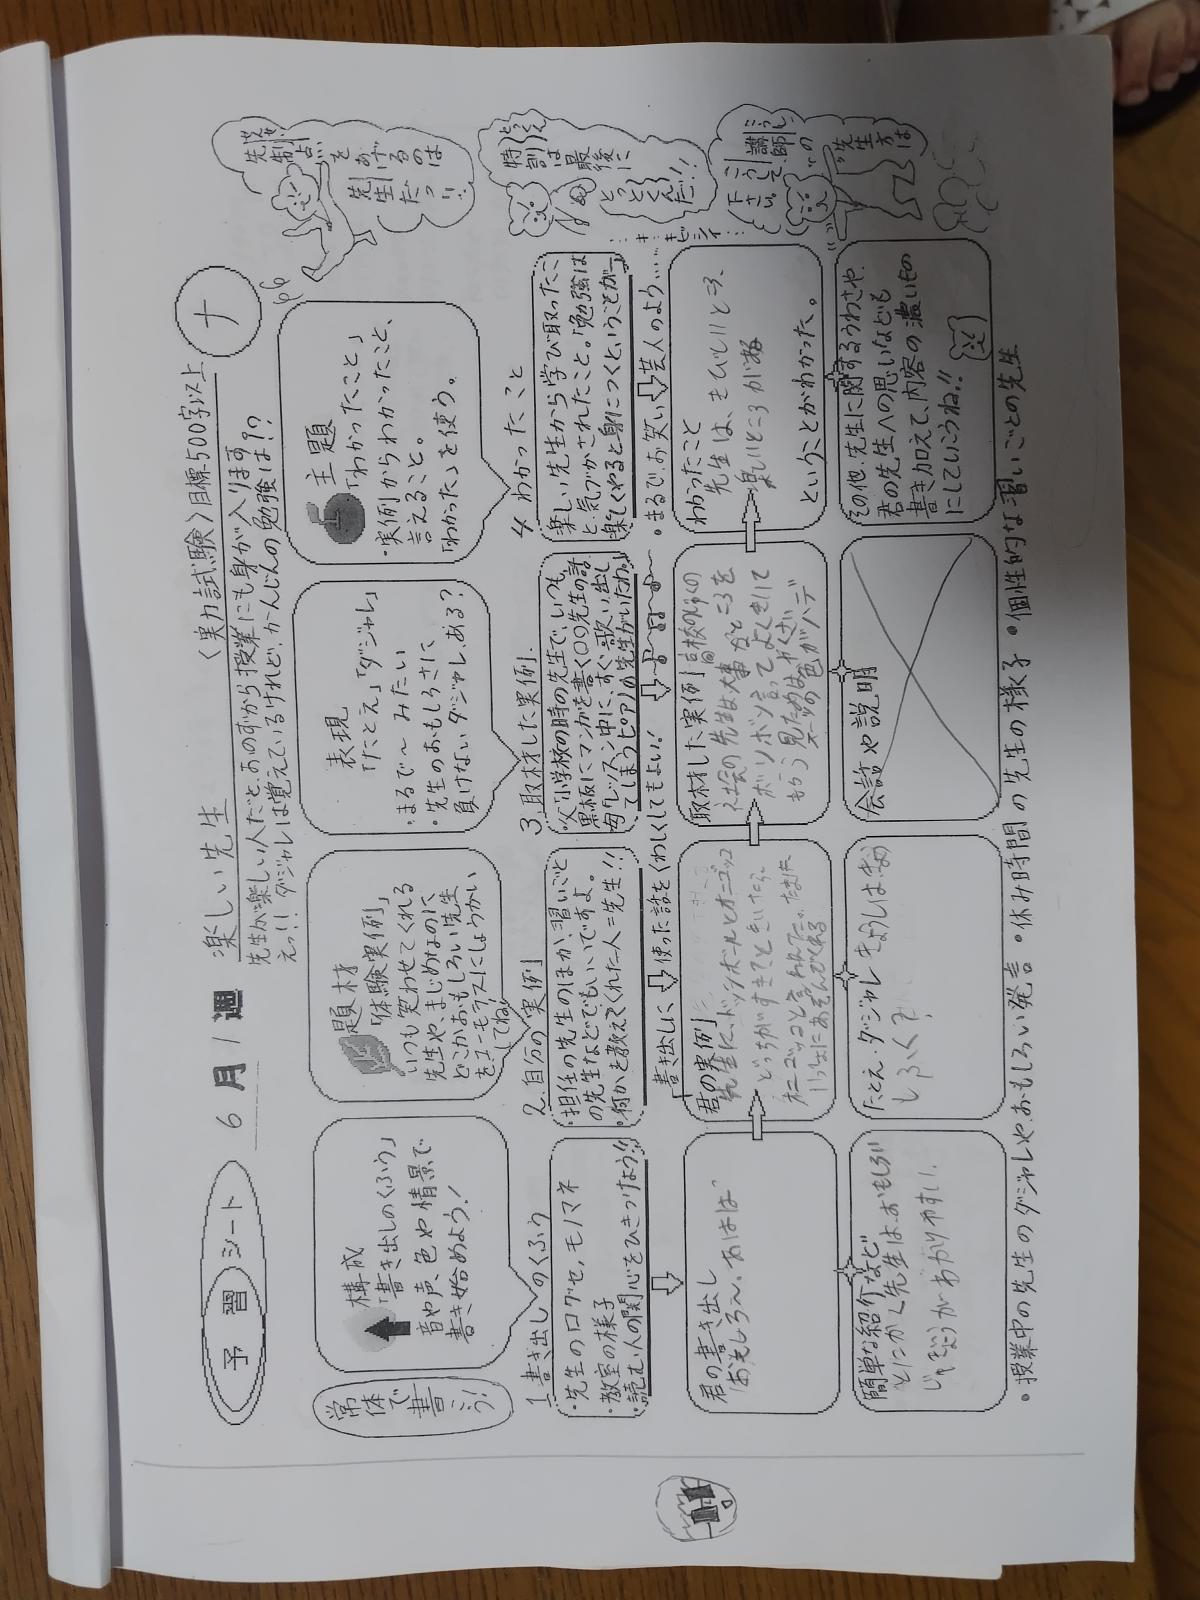 予習シート 6月1週 楽しい先生 〈実力試験〉目標500字以上 ナ
先生が楽しい人だと、おのずから授業にも身が入ります
えっ!! ダジャレは覚えているけれど、かーんじんの勉強は!?
常体で書こう!
構成
「書き出しのくふう」
音や声、色や情景で
書き始めよう!
題材
「体験実例」
いつも笑わせてくれる
先生や、まじめなのに、
どこかおもしろい先生
をユーモラスにしょうかい
してね!
表現
「たとえ」「ダジャレ」
・まるで〜みたい
・先生のおもしろさに
負けないダジャレ、ある?
主題
「わかったこと」
・実例からわかったこと、
言えること。
「わかった」を使う。
先制点を
あげるのは
先生だっ!!
1 書き出しのくふう
・先生の口グセ,モノマネ
・教室の様子
・読む人の関心をひきつけよう!!
2.自分の実例
・担任の先生のほか、習いごと
の先生などでもいいですよ。
・何かを教えてくれた人=先生!!
3 取材した実例
・父「小学校の時の先生で、いつも
黒板にマンガを書く〇〇先生の話
母「レッスン中に、すぐ歌い出し
てしまうピアノの先生がいたわ。」
4 わかったこと
楽しい先生から学び取ったこ
と、気づかされたこと。「勉強は
楽しくやると身につくということが〜」
特訓は
最後に
とっとくんだ!!
「書き出しに 使った話をくわしくしてもよい!
・まるで、お笑い芸人のよう……
君の書き出し
「おもしろん、あはは」
君の実例
どっちがすきてときいたら、
オニゴッコと言われた。たまに
いっしょにあそんでくれる
取材した実例
社会の先生は大事なところを
ボソボソ言ってよくきいて
もらう 見ためはやくざい
スーツの色がハデ
わかったこと
先生は、きびしいところ、
楽しいところがある
ということがわかった。
簡単な紹介など
とにかく先生は、おもしろい
じゅぎょうがわかりやすい.
たとえ・ダジャレ
会話や説明
その他、先生に関するうわさや、
君の先生への思いなども
書き加えて、内容の濃いもの
にしていこうね!!
・授業中の先生のダジャレや、おもしろい発言 ・休み時間の先生の様子 ・個性的な習いごとの先生